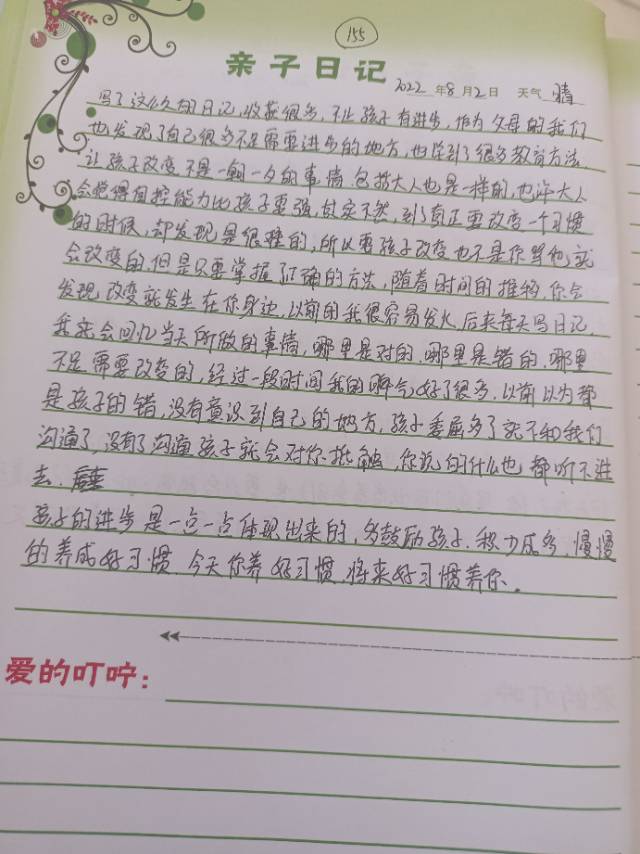 155
亲子日记
2022年8月2日 天气 晴
写了这么久的日记,收获很多,不止孩子有进步,作为父母的我们
也发现了自己很多不足需要进步的地方,也学到了很多教育方法
让孩子改变不是一朝一夕的事情,包括大人也是一样的,也许大人
会觉得自控能力比孩子要强,其实不然,到了真正要改变一个习惯
的时候,却发现是很难的,所以要孩子改变也不是你骂他就
会改变的,但是只要掌握了正确的方法,随着时间的推移,你会
发现改变就发生在你身边,以前的我很容易发火,后来每天写日记,
我就会回忆当天所做的事情,哪里是对的,哪里是错的,哪里
不足需要改变的,经过一段时间我的脾气好了很多,以前以为都
是孩子的错,没有意识到自己的地方,孩子委屈多了就不和我们
沟通了,没有了沟通孩子就会对你抵触,你说的什么他都听不进
去.
孩子的进步是一点一点体现出来的,多鼓励孩子.积少成多,慢慢
的养成好习惯.今天你养好习惯,将来好习惯养你.
爱的叮咛: